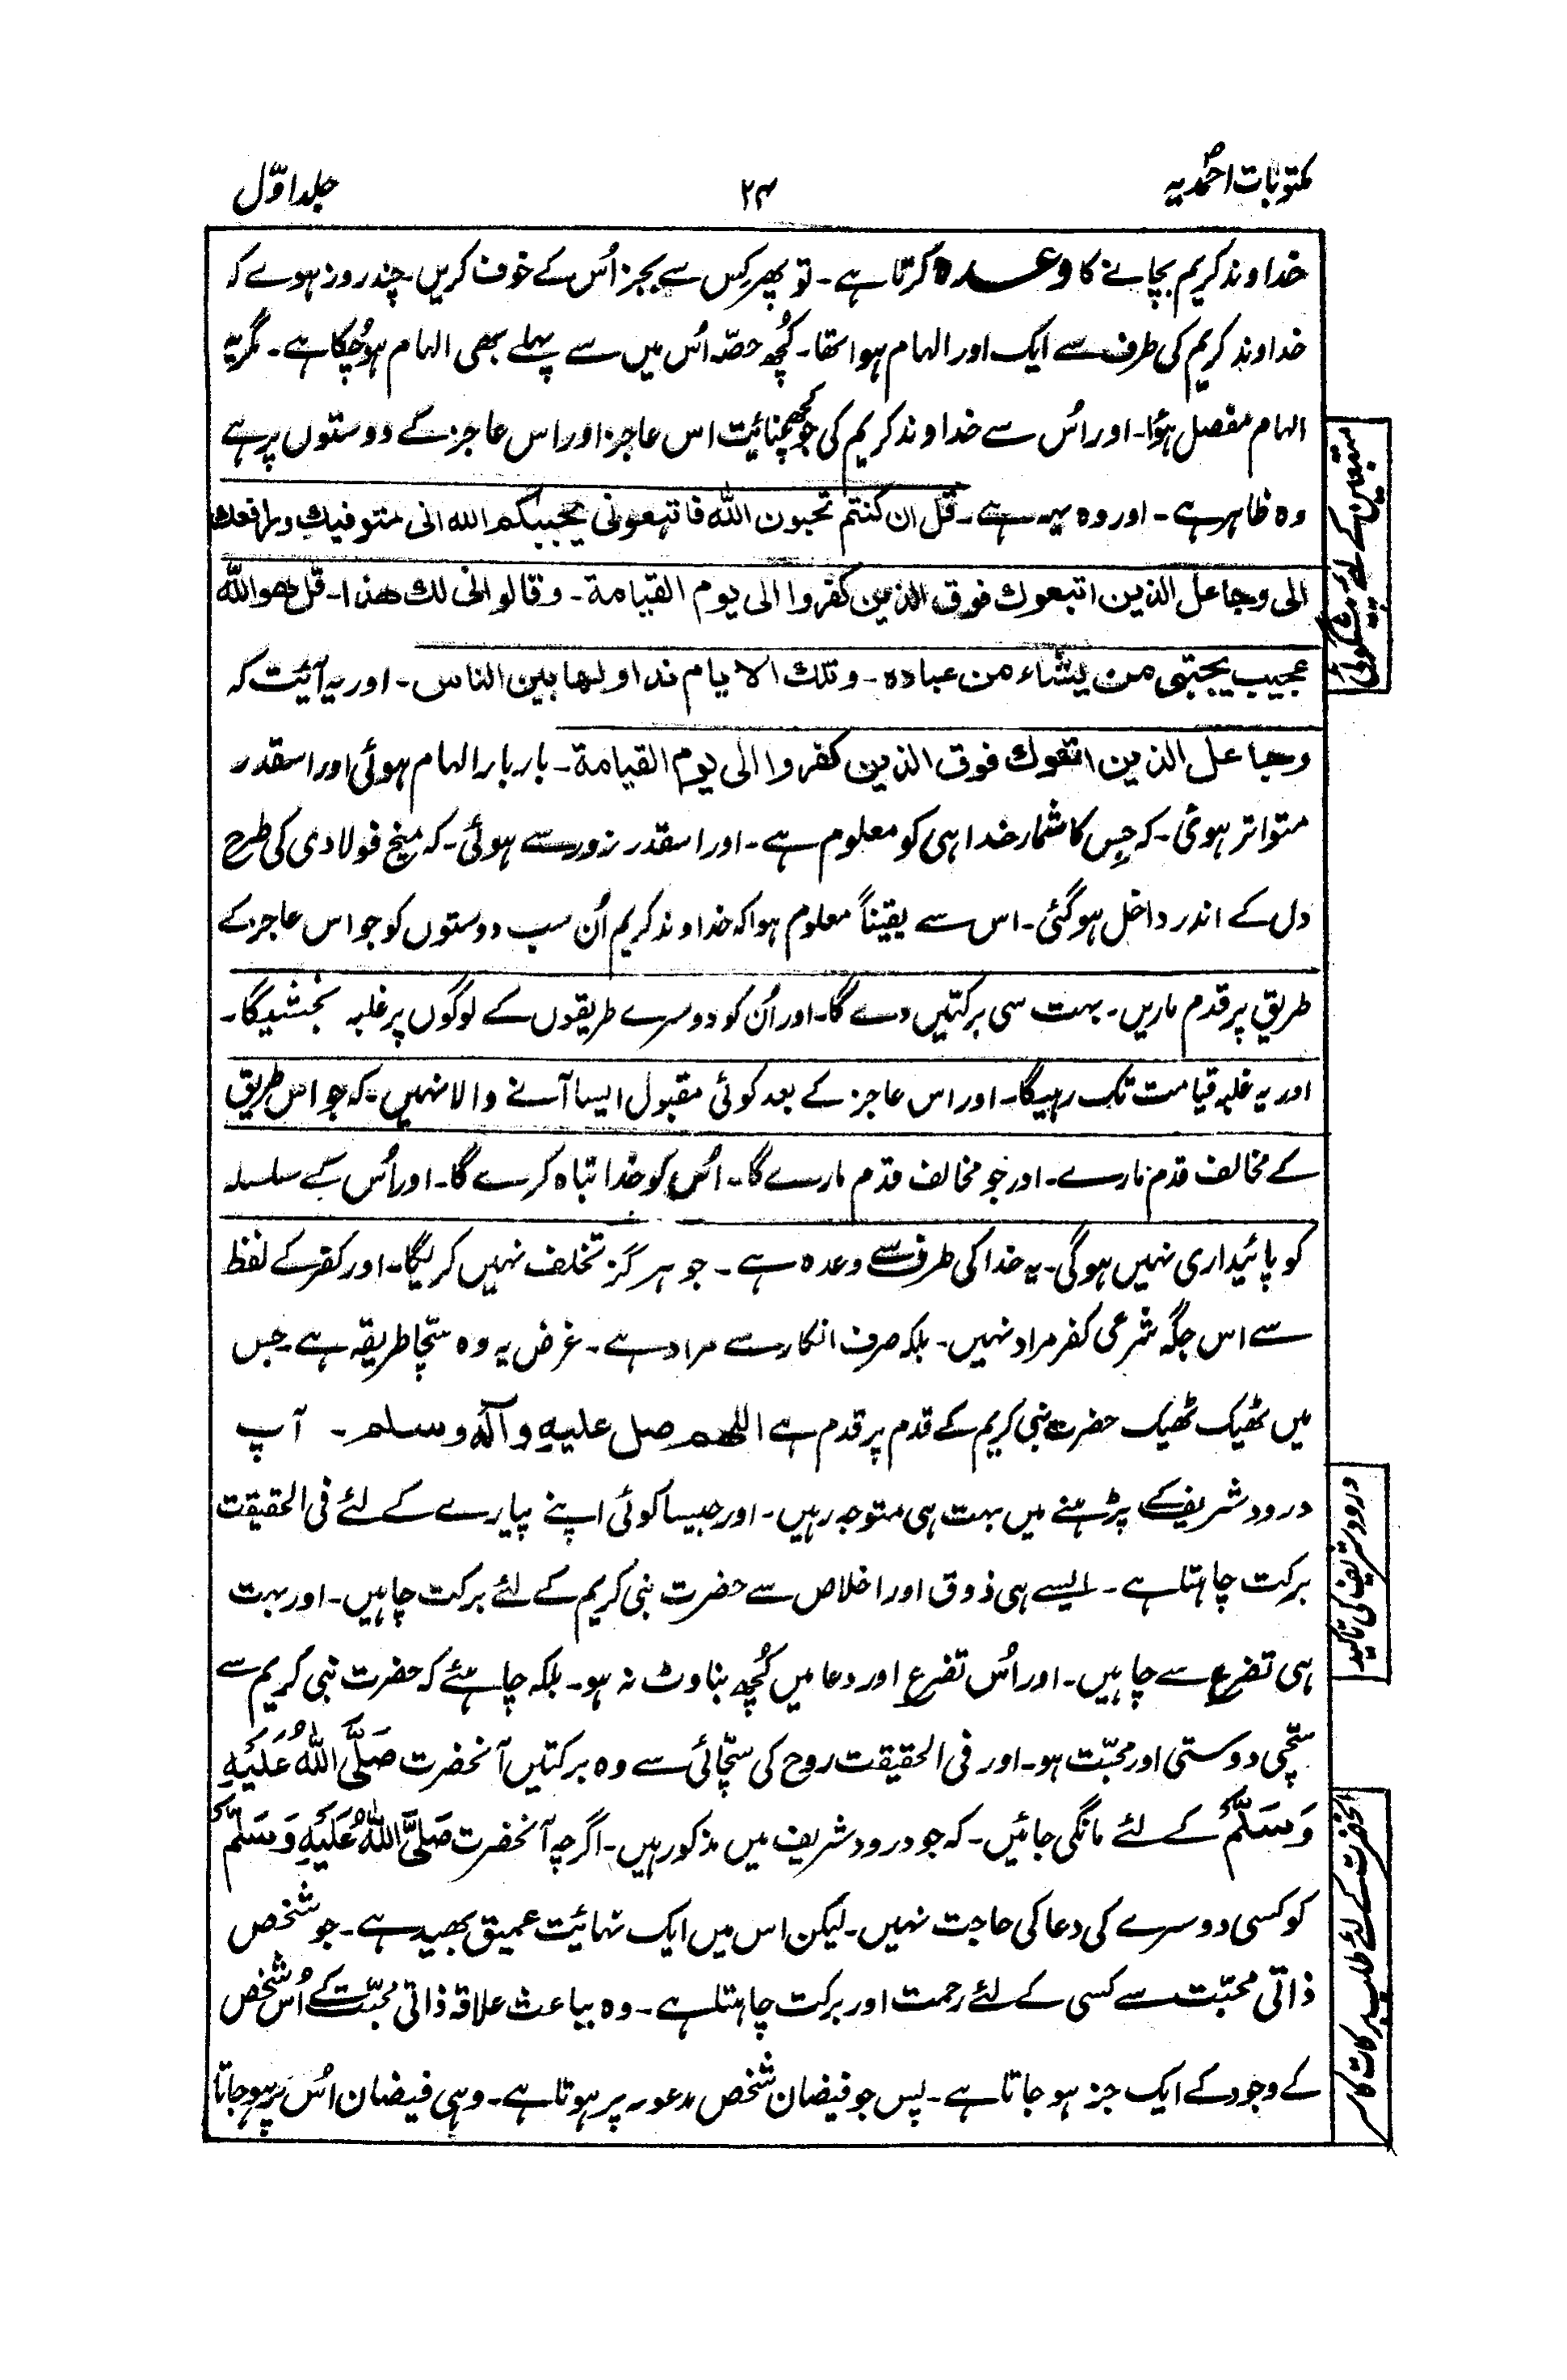 مکتوبات احمدیہ
۲۴
جلد اوّل
خداوند کریم بچانے کا وعدہ کرتا ہے۔ تو پھر کِس سے بجز اُس کے خوف کریں۔ چند روز ہوے کہ
خداوند کریم کی طرف سے ایک اور الہام ہوا تھا۔ کُچھ حصّہ اُس میں سے پہلے بھی الہام ہوچُکا ہے۔ مگر یہ
الہام مفصل ہؤا۔ اور اُس سے خداوند کریم کی جو کچھ عنائیت اس عاجز اور اس عاجز کے دوستوں پر ہے
وہ ظاہر ہے۔ اور وہ یہ ہے۔ قل ان کنتم تحبون اللہ فاتبعونی یحببکم اللہ انی متوفیك ورافعك
الی وجاعل الذین اتبعوك فوق الذین کفروا الی یوم القیامة۔ وقالوا انی لك ھذا۔ قل ھو اللہ
عجیب یجتبی من یشاء من عبادہ۔ وتلك الایام نداولھا بین الناس۔ اور یہ آئیت کہ
وجاعل الذین اتبعوك فوق الذین کفروا الی یوم القیامة۔ بار بار الہام ہوئی اور اسقدر
متواتر ہوئی۔ کہ جِس کا شمار خدا ہی کو معلوم ہے۔ اور اسقدر زور سے ہوئی۔ کہ میخ فولادی کی طرح
دل کے اندر داخل ہوگئی۔ اس سے یقیناً معلوم ہوا کہ خداوند کریم اُن سب دوستوں کو جو اس عاجز کے
طریق پر قدم ماریں۔ بہت سی برکتیں دے گا۔ اور اُن کو دوسرے طریقوں کے لوگوں پر غلبہ بخشیگا۔
اور یہ غلبہ قیامت تک رہیگا۔ اور اس عاجز کے بعد کوئی مقبول ایسا آنے والا نہیں۔ کہ جو اس طریق
کے مخالف قدم مارے۔ اور جو مخالف قدم مارے گا۔ اُس کو خدا تباہ کرے گا۔ اور اُس کے سلسلہ
کو پائیداری نہیں ہوگی۔ یہ خدا کی طرف سے وعدہ ہے۔ جو ہرگز تخلف نہیں کریگا۔ اور کفر کے لفظ
سے اس جگہ شرعی کفر مراد نہیں۔ بلکہ صرف انکار سے مراد ہے۔ غرض یہ وہ سچّا طریقہ ہے۔ جس
میں ٹھیک ٹھیک حضرت نبی کریم کے قدم پر قدم ہے اللھم صل علیہ وآلہ وسلم۔ آپ
درود شریف کے پڑہنے میں بہت ہی متوجہ رہیں۔ اور جیسا کوئی اپنے پیارے کے لئے فی الحقیقت
برکت چاہتا ہے۔ ایسے ہی ذوق اور اخلاص سے حضرت نبی کریم کے لئے برکت چاہیں۔ اور بہت
ہی تضرع سے چاہیں۔ اور اُس تضرع اور دعا میں کُچھ بناوٹ نہ ہو۔ بلکہ چاہئے کہ حضرت نبی کریم سے
سچّی دوستی اور محبّت ہو۔ اور فی الحقیقت روح کی سچّائی سے وہ برکتیں آنحضرت صَلَّی اللہُ عَلَیْہِ
وَسَلَّمْ کے لئے مانگی جائیں۔ کہ جو درود شریف میں مذکور ہیں۔ اگرچہ آنحضرت صَلَّی اللہُ عَلَیْہِ وَسَلَّمْ
کو کسی دوسرے کی دعا کی حاجت نہیں۔ لیکن اس میں ایک نہائیت عمیق بھید ہے۔ جو شخص
ذاتی محبّت سے کسی کے لئے رحمت اور برکت چاہتا ہے۔ وہ بباعث علاقہ ذاتی محبّت کے اُس شخص
کے وجود کے ایک جز ہو جاتا ہے۔ پس جو فیضان شخص مدعو لہ پر ہوتا ہے۔ وہی فیضان اُس پر ہو جاتا
متبعین کے لئے پیشگوئی
درود شریف کی تاکید
آنحضرت کے لئے طلب برکات کا سر